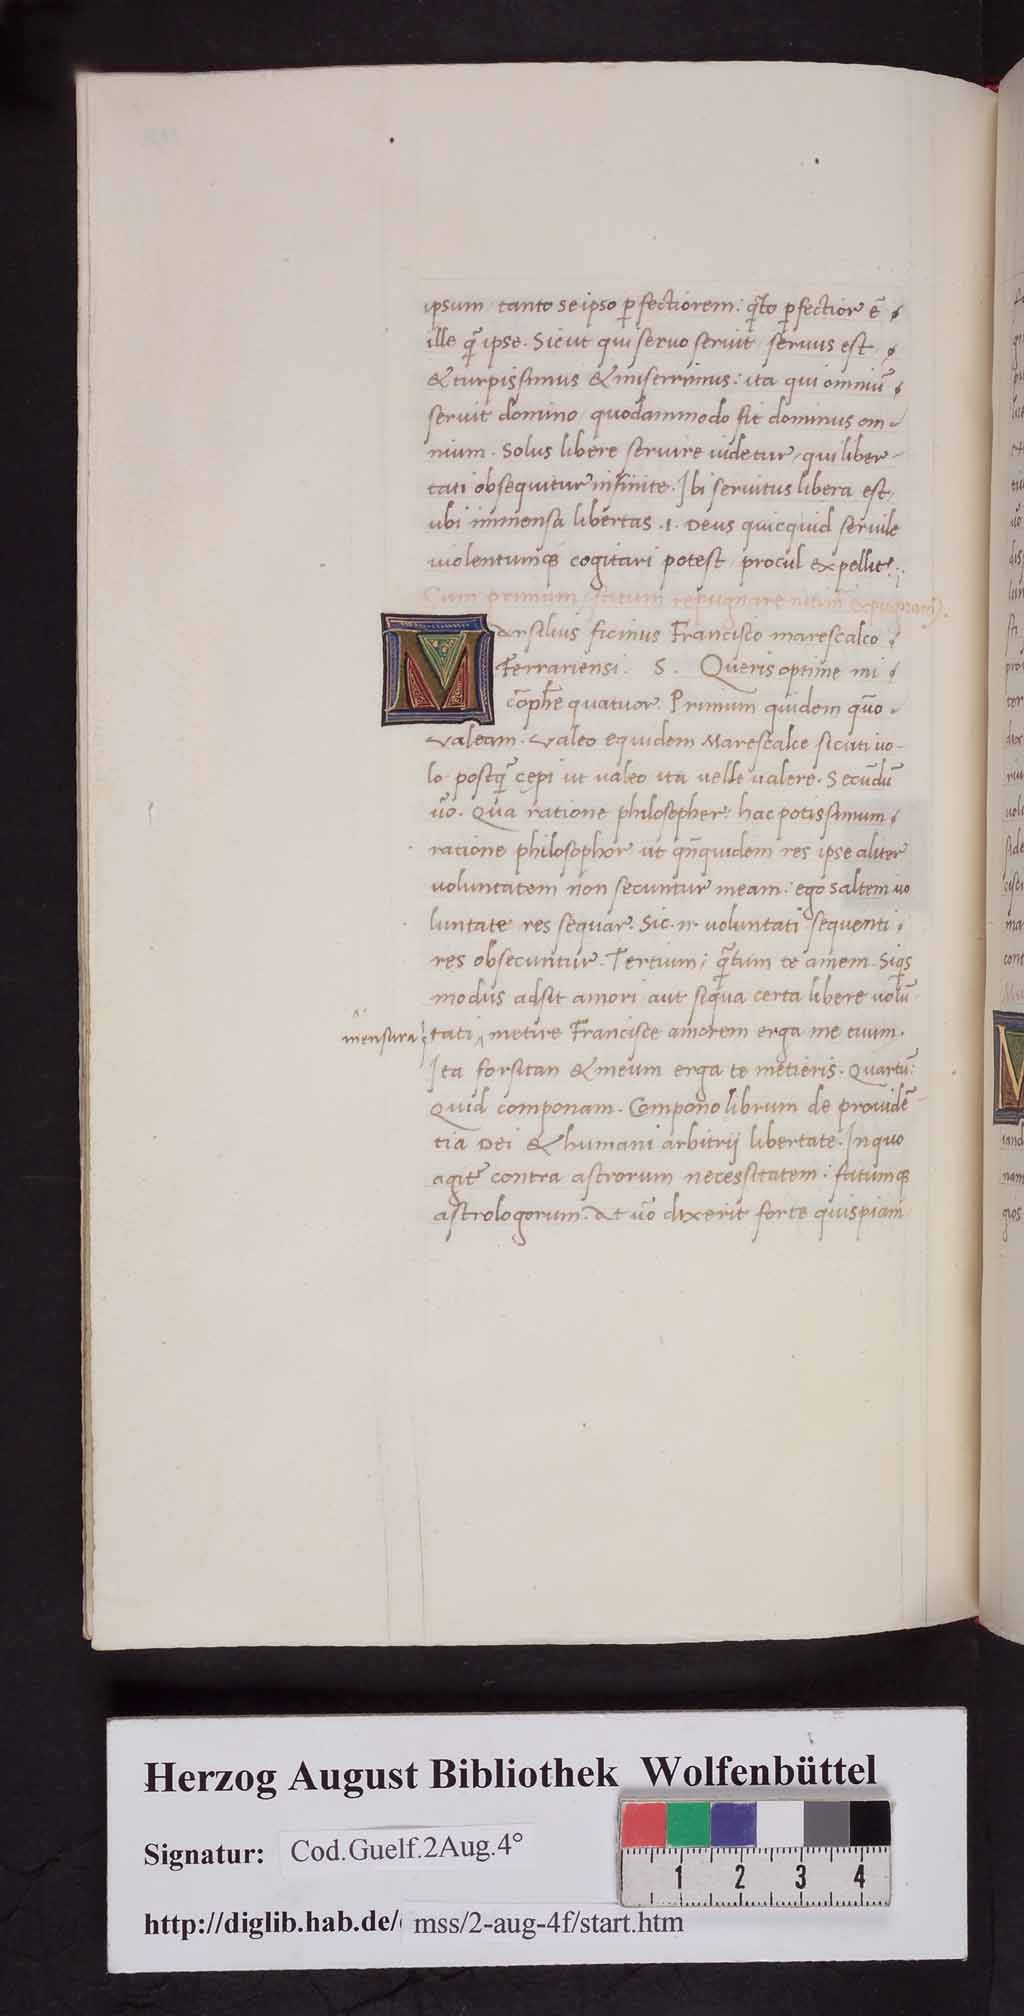 ipsum tanto seipso ꝑfectiorem: qᷓto ꝑfectior ē
ille qᷓ ipse. Sicut qui seruo seruit seruus est
& turpissimus & miserrimus: ita qui omniū
seruit domino quodammodo fit dominus om-
nium. Solus libere seruire uidetur, qui liber-
tati obsequitur infinite. Ibi seruitus libera est,
ubi immensa libertas .i. Deus quicquid seruile
uiolentumqꝫ cogitari potest procul expellit.
Cum primum fatum repugnare nitim̃ expugnam̃.
Marsilius ficinus Francisco marescalco
Ferrariensi. S. Queris optime mi
cōphẽ quatuor. Primum quidem quō
valeam. Valeo equidem Marescalce sicuti uo-
lo postqᷓ cepi ut ualeo ita uelle ualere. Secūdū
uō. Qua ratione philosopher: hac potissimum
ratione philosophor ut qñquidem res ipse aliter
uoluntatem non secuntur meam: ego saltem uo
luntate res sequar. Sic .n. uoluntati sequenti
res obsecuntur. Tertium, qᷓtum te amem. Siqͥs
modus adsit amori aut siqua certa libere uolū
mensura tati, metire Francisce amorem erga me tuum.
Ita forsitan & meum erga te metieris. Quartū:
Quid componam. Compono librum de prouidē
tia Dei & humani arbitrij libertate. In quo
agit̃ contra astrorum necessitatem: fatumqꝫ
astrologorum. At uō dixerit forte quispiam
Herzog August Bibliothek Wolfenbüttel
Signatur: Cod.Guelf.2Aug.4°
http://diglib.hab.de/ mss/2-aug-4f/start.htm
1 2 3 4